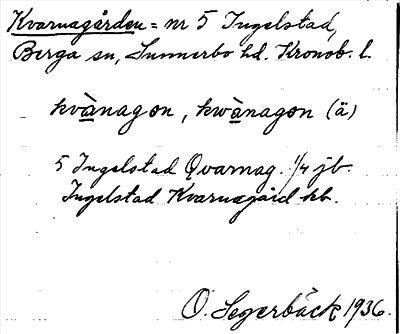 Kvarnagården = nr 5 Ingelstad,
Berga sn, Sunnerbo hd. Kronob. l.
kvànagon, kwànagon (ä)
5 Ingelstad Qvarnag. 1/4 jb.
Ingelstad Kvarnagård kb.
O. Segerbäck 1936.